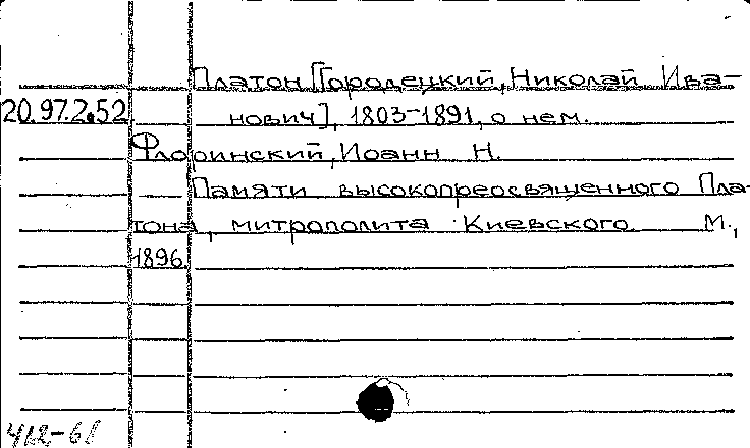 Платон [Городецкий, Николай Ива-
20.97.2.52 нович], 1803-1891, о нем.
Флоринский, Иоанн Н.
Памяти высокопреосвященного Пла-
тона, митрополита Киевского М.,
1896.
412-61